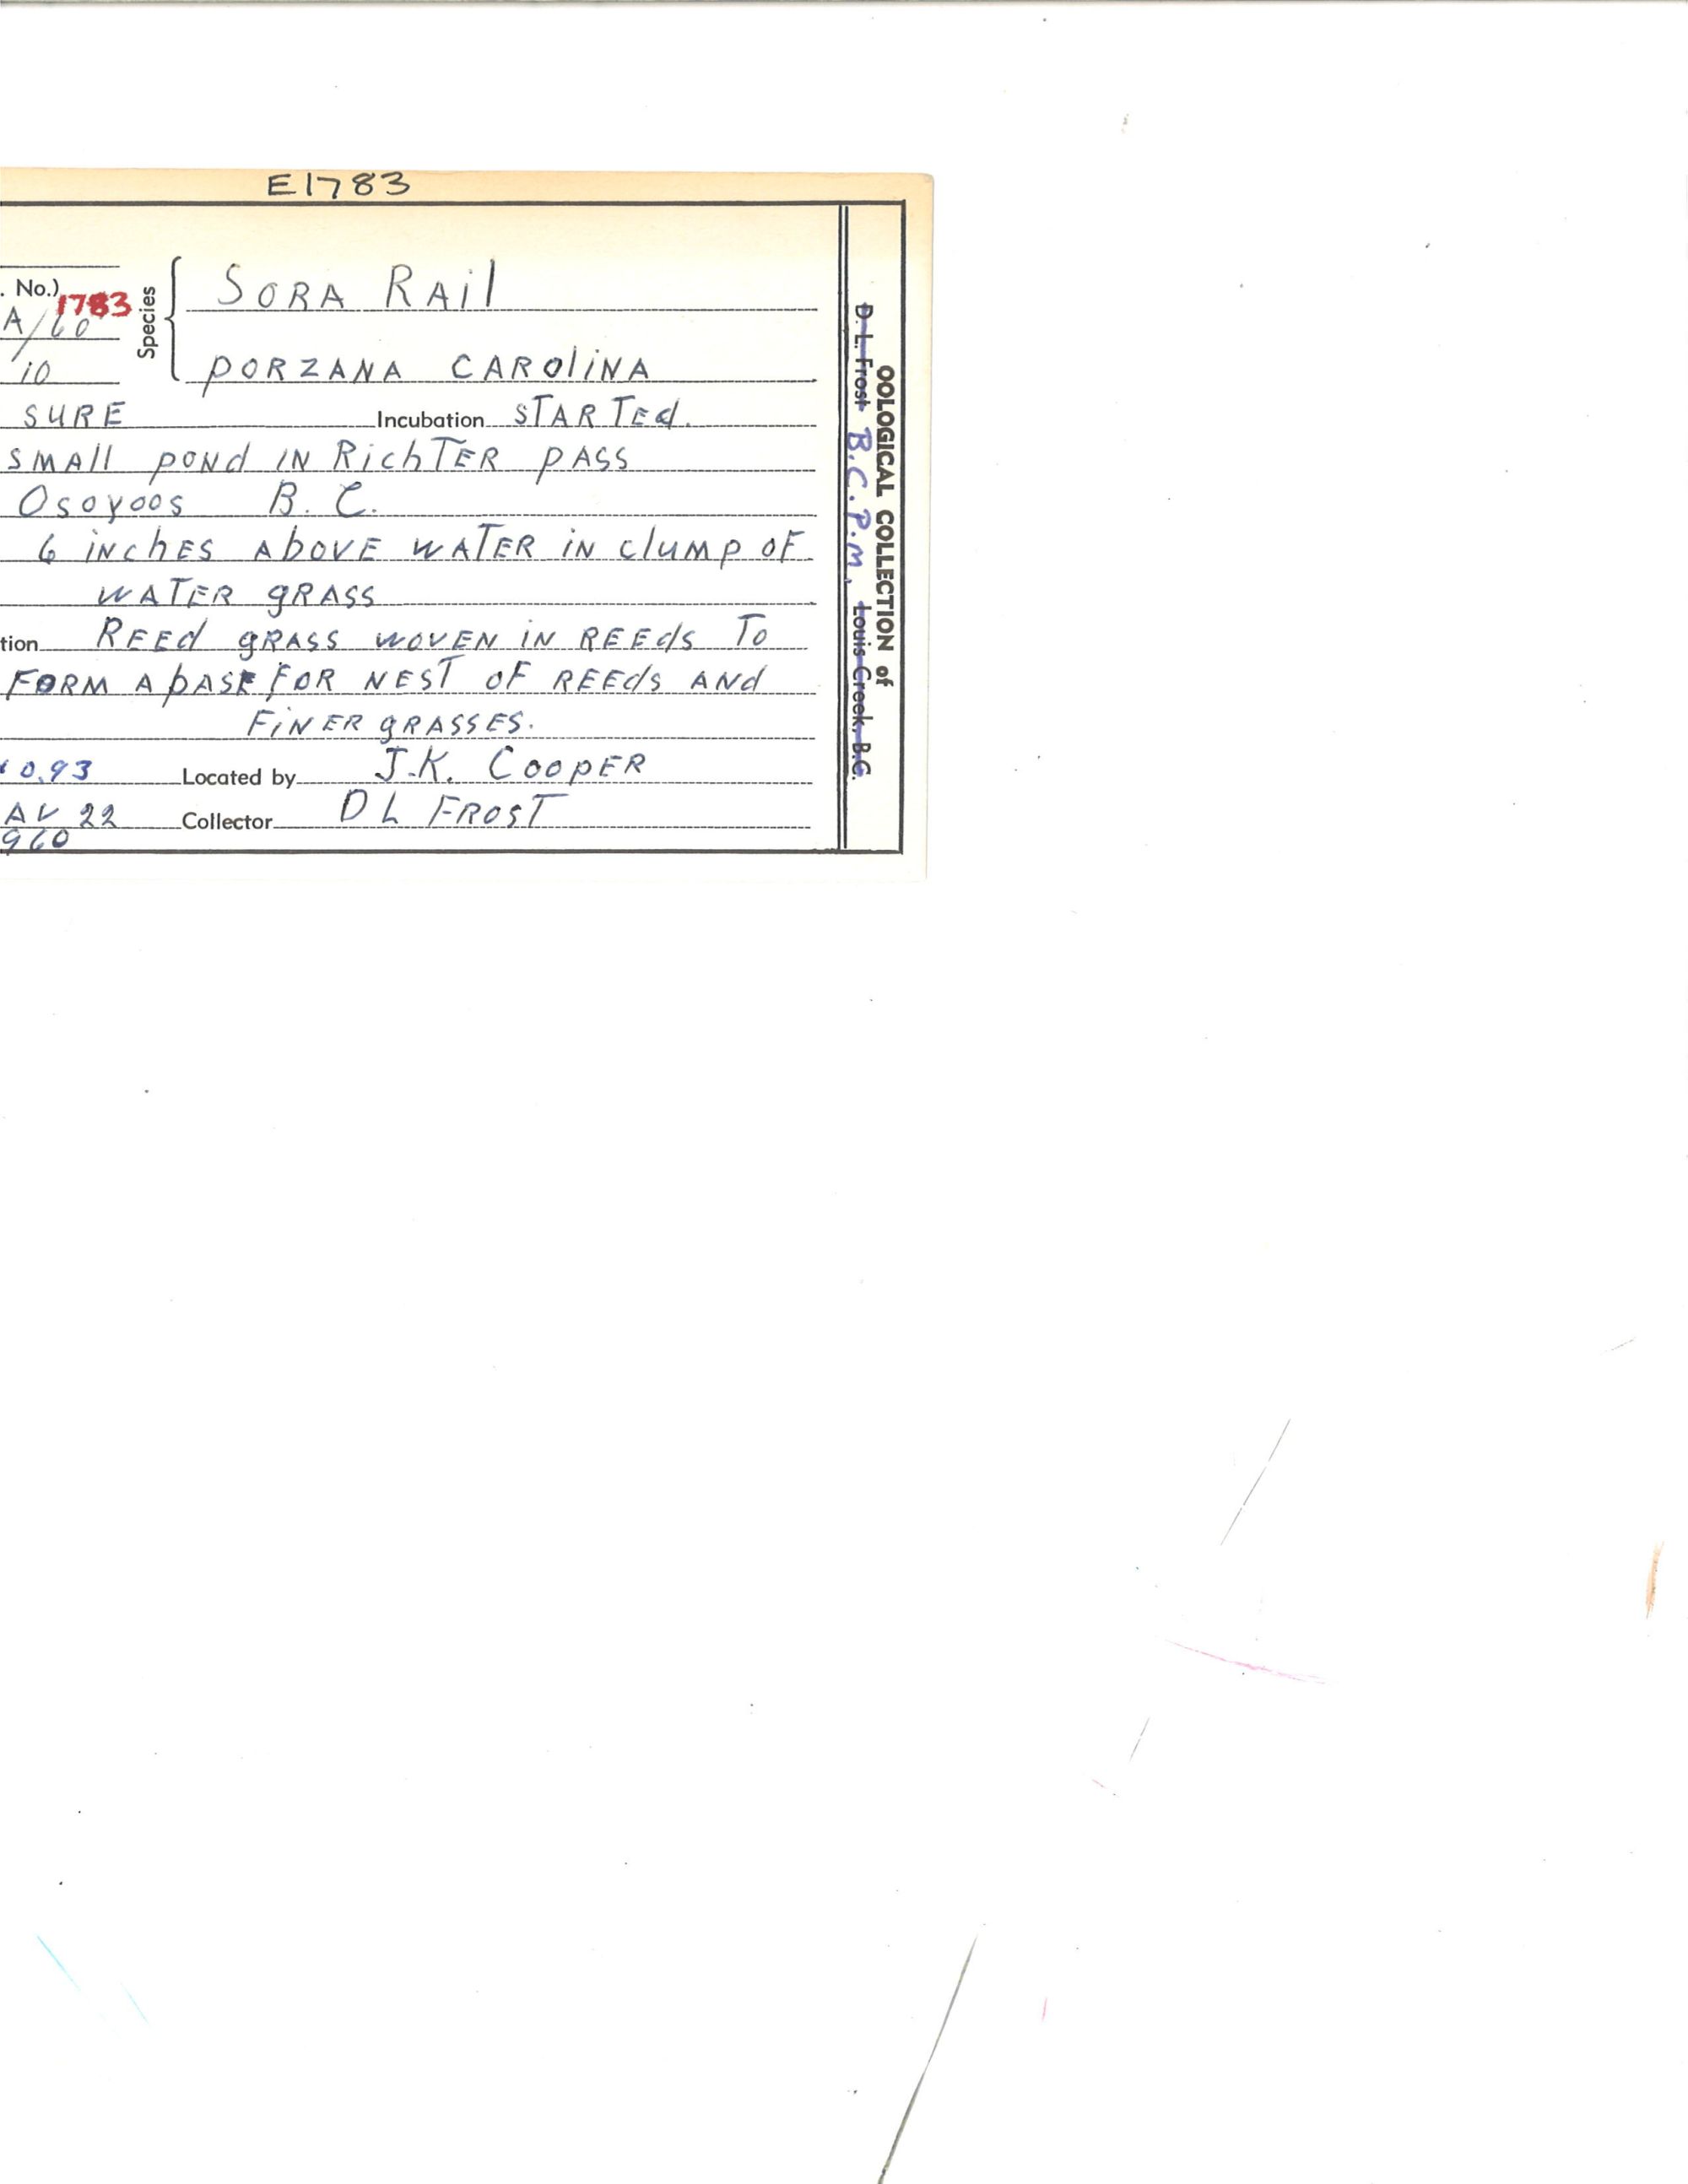 E1783
. No.) 1783
A/60
Species
SORA RAil
/10
PORZANA CAROliNA
SURE Incubation STARTEd.
SMAll pONd IN RichTER pASS
OsoyooS B. C.
6 iNchES AbOVE WATER iN clUMp OF
WATER gRASS
tion REEd gRASS WOVEN iN REEdS To
FORM A bASE FOR NEST OF REEdS ANd
FiNER gRASSES.
0.93 Located by J.K. COOpER
AV 22 Collector D L FROST
960
OOLOGICAL COLLECTION of
D. L. Frost B.C.P.M. Louis Creek, B.C.